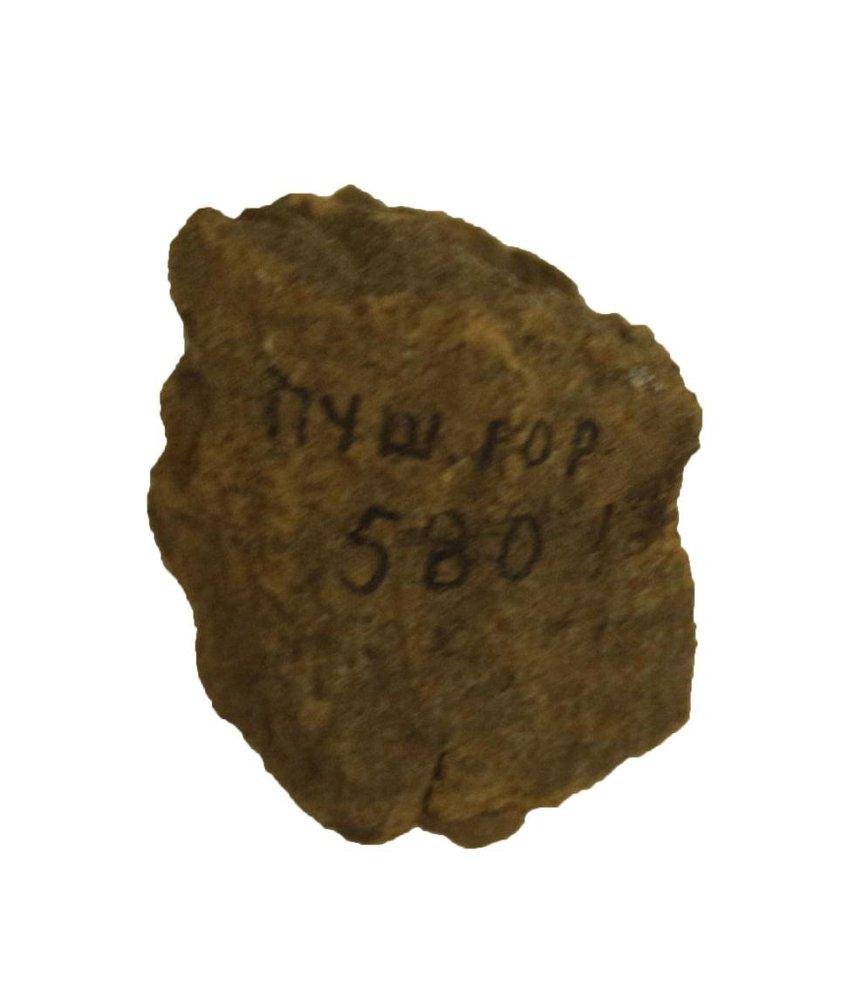 ПУШ.ГОР
580